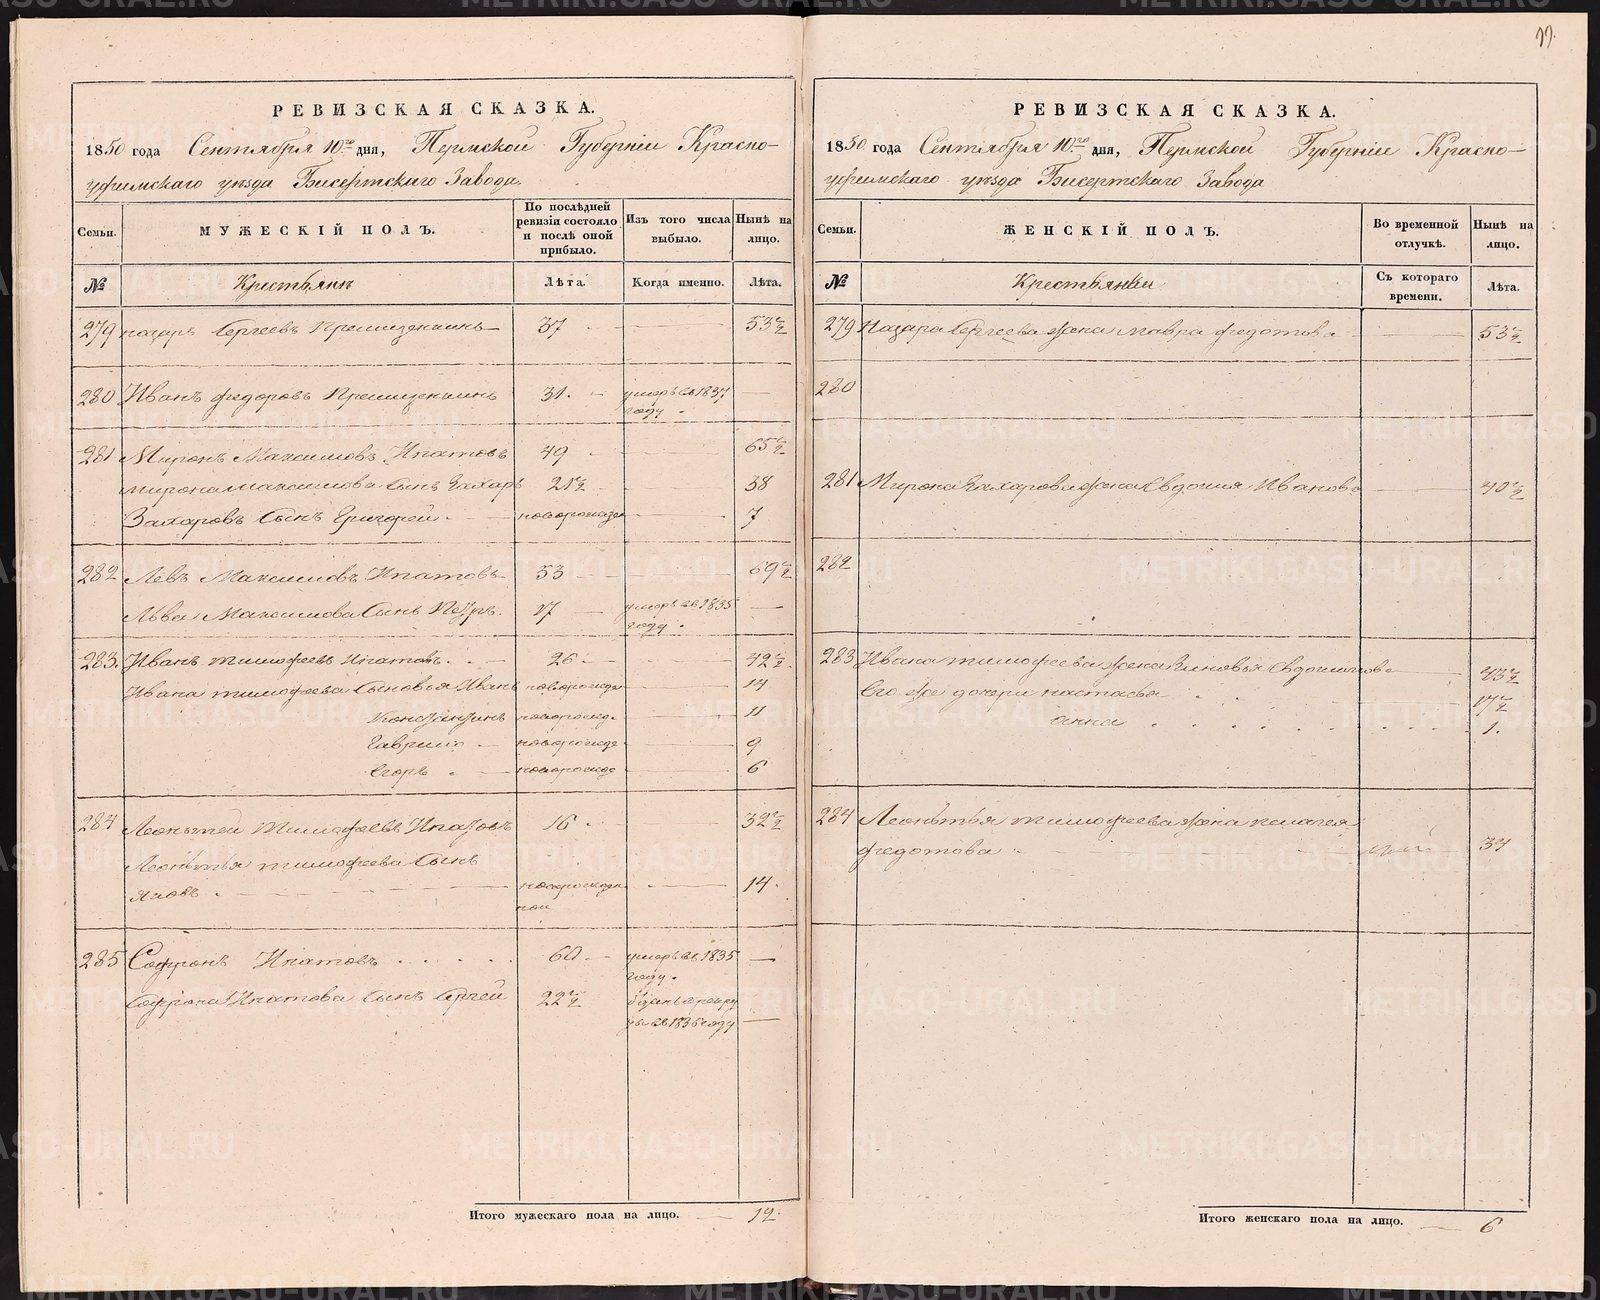 99.
РЕВИЗСКАЯ СКАЗКА.
1850 года Сентября 10го дня, Пермской Губернiи Красно-
уфимскаго уѣзда Бисертскаго Завода.
Семьи.
МУЖЕСКIЙ ПОЛЪ.
По послѣдней ревизiи состояло и послѣ оной прибыло.
Изъ того числа выбыло.
Нынѣ на лицо.
№ Крестьянъ Лѣта. Когда именно. Лѣта.
279 Назаръ Сергеевъ 37 53½
280 Иванъ Федоровъ 31 умеръ въ 1837 году
281 Миронъ Максимовъ Ипатовъ 49 65½
Мирона Максимова Сынъ Захаръ 21½ 38
Захаровъ Сынъ Григорей новорожден 7
282 Левъ Максимовъ Ипатовъ 53 69½
Льва Максимова Сынъ Петръ. 17 умеръ въ 1835 году
283. Иванъ Тимофеевъ Ипатовъ. 26 42½
Ивана Тимофеева Сыновья Иванъ новорожде 14
Констянтинъ новорожд. 11
Гаврило новорожде 9
Егоръ новорожде 6
284 Леонтей Тимофеевъ Ипатовъ 16 32½
Леонтья Тимофеева Сынъ
Яковъ новорожден 14.
ной
285 Софронъ Ипатовъ 60 умеръ въ 1835 году.
Софрона Ипатова Сынъ Сергей 22½ въ 1836 году
Итого мужескаго пола на лицо. 12.
РЕВИЗСКАЯ СКАЗКА.
1850 года Сентября 10го дня, Пермской Губернiи Красно-
уфимскаго уѣзда Бисертскаго Завода
Семьи.
ЖЕНСКIЙ ПОЛЪ.
Во временной отлучкѣ.
Нынѣ на лицо.
№ Крестьянки Съ котораго времени. Лѣта.
279 Назара Сергеева жена Мавра Федотова 53½
280
281 Мирона Захарова жена Евдокия Иванова 40½
282
283 Ивана Тимофеева жена Зиновья Евдокимова 43½
Его же дочери Настасья 17½
Анна 1.
284 Леонтья Тимофеева жена Пелагея
Федотова 37
Итого женскаго пола на лицо. 6
METRIKI.GASO-URAL.RU